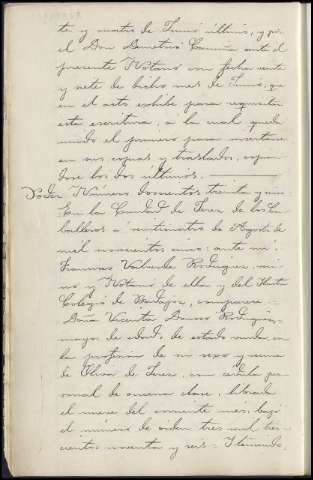 te y cuatro de Junio último, y por
el Don Demetrio ante el
presente Notario con fecha veinte
y siete de dicho mes de Junio, que
en el acto exhibe para
esta escritura, a la cual queda
unido el primero para insertarse
en sus copias y traslados,
dose los dos últimos.
Poder Número doscientos treinta y uno
En la Ciudad de Jerez de los Ca-
balleros a veinticuatro de Agosto de
mil novecientos cinco: ante mí
Francisco Valverde Rodríguez, veci-
no y Notario de ella y del Ilustre
Colegio de comparece:
Doña Vicenta Rodríguez,
mayor de edad, de estado viuda, en
la profesión de su sexo y vecina
de Oliva de Jerez, con cédula per-
sonal de oncena clase, librada
el nueve del corriente mes, bajo
el número de orden tres mil tres-
cientos noventa y seis. Teniendo,